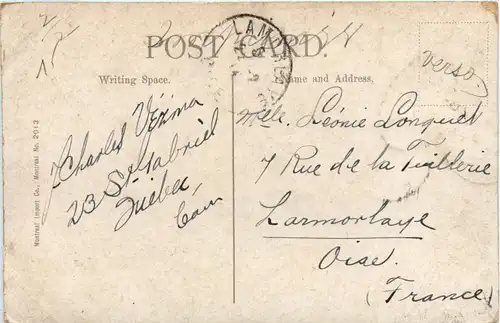 POST CARD.
Writing Space.
Name and Address,
verso
J Charles Vézina
23 St. Gabriel
Québec
Can
Melle. Léonie Longuet
7 Rue de la Tuillerie
Larmorlaye
Oise.
(France)
Montreal Import Co., Montreal No. 2013
LAM